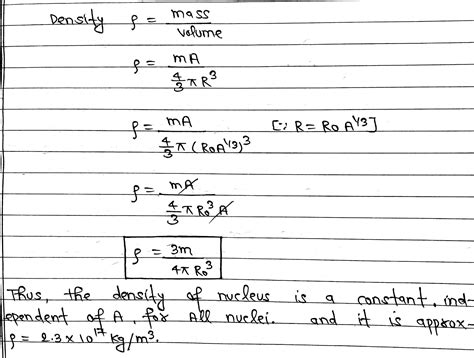 Density ρ = mass / volume
ρ = mA / (4/3 π R³)
ρ = mA / (4/3 π (R₀A^1/3)³) [∵ R = R₀ A^1/3]
ρ = mA / (4/3 π R₀³ A)
ρ = 3m / (4π R₀³)
Thus, the density of nucleus is a constant, ind-
ependent of A, for All nuclei. and it is approx-
ρ = 2.3 × 10¹⁷ kg/m³.